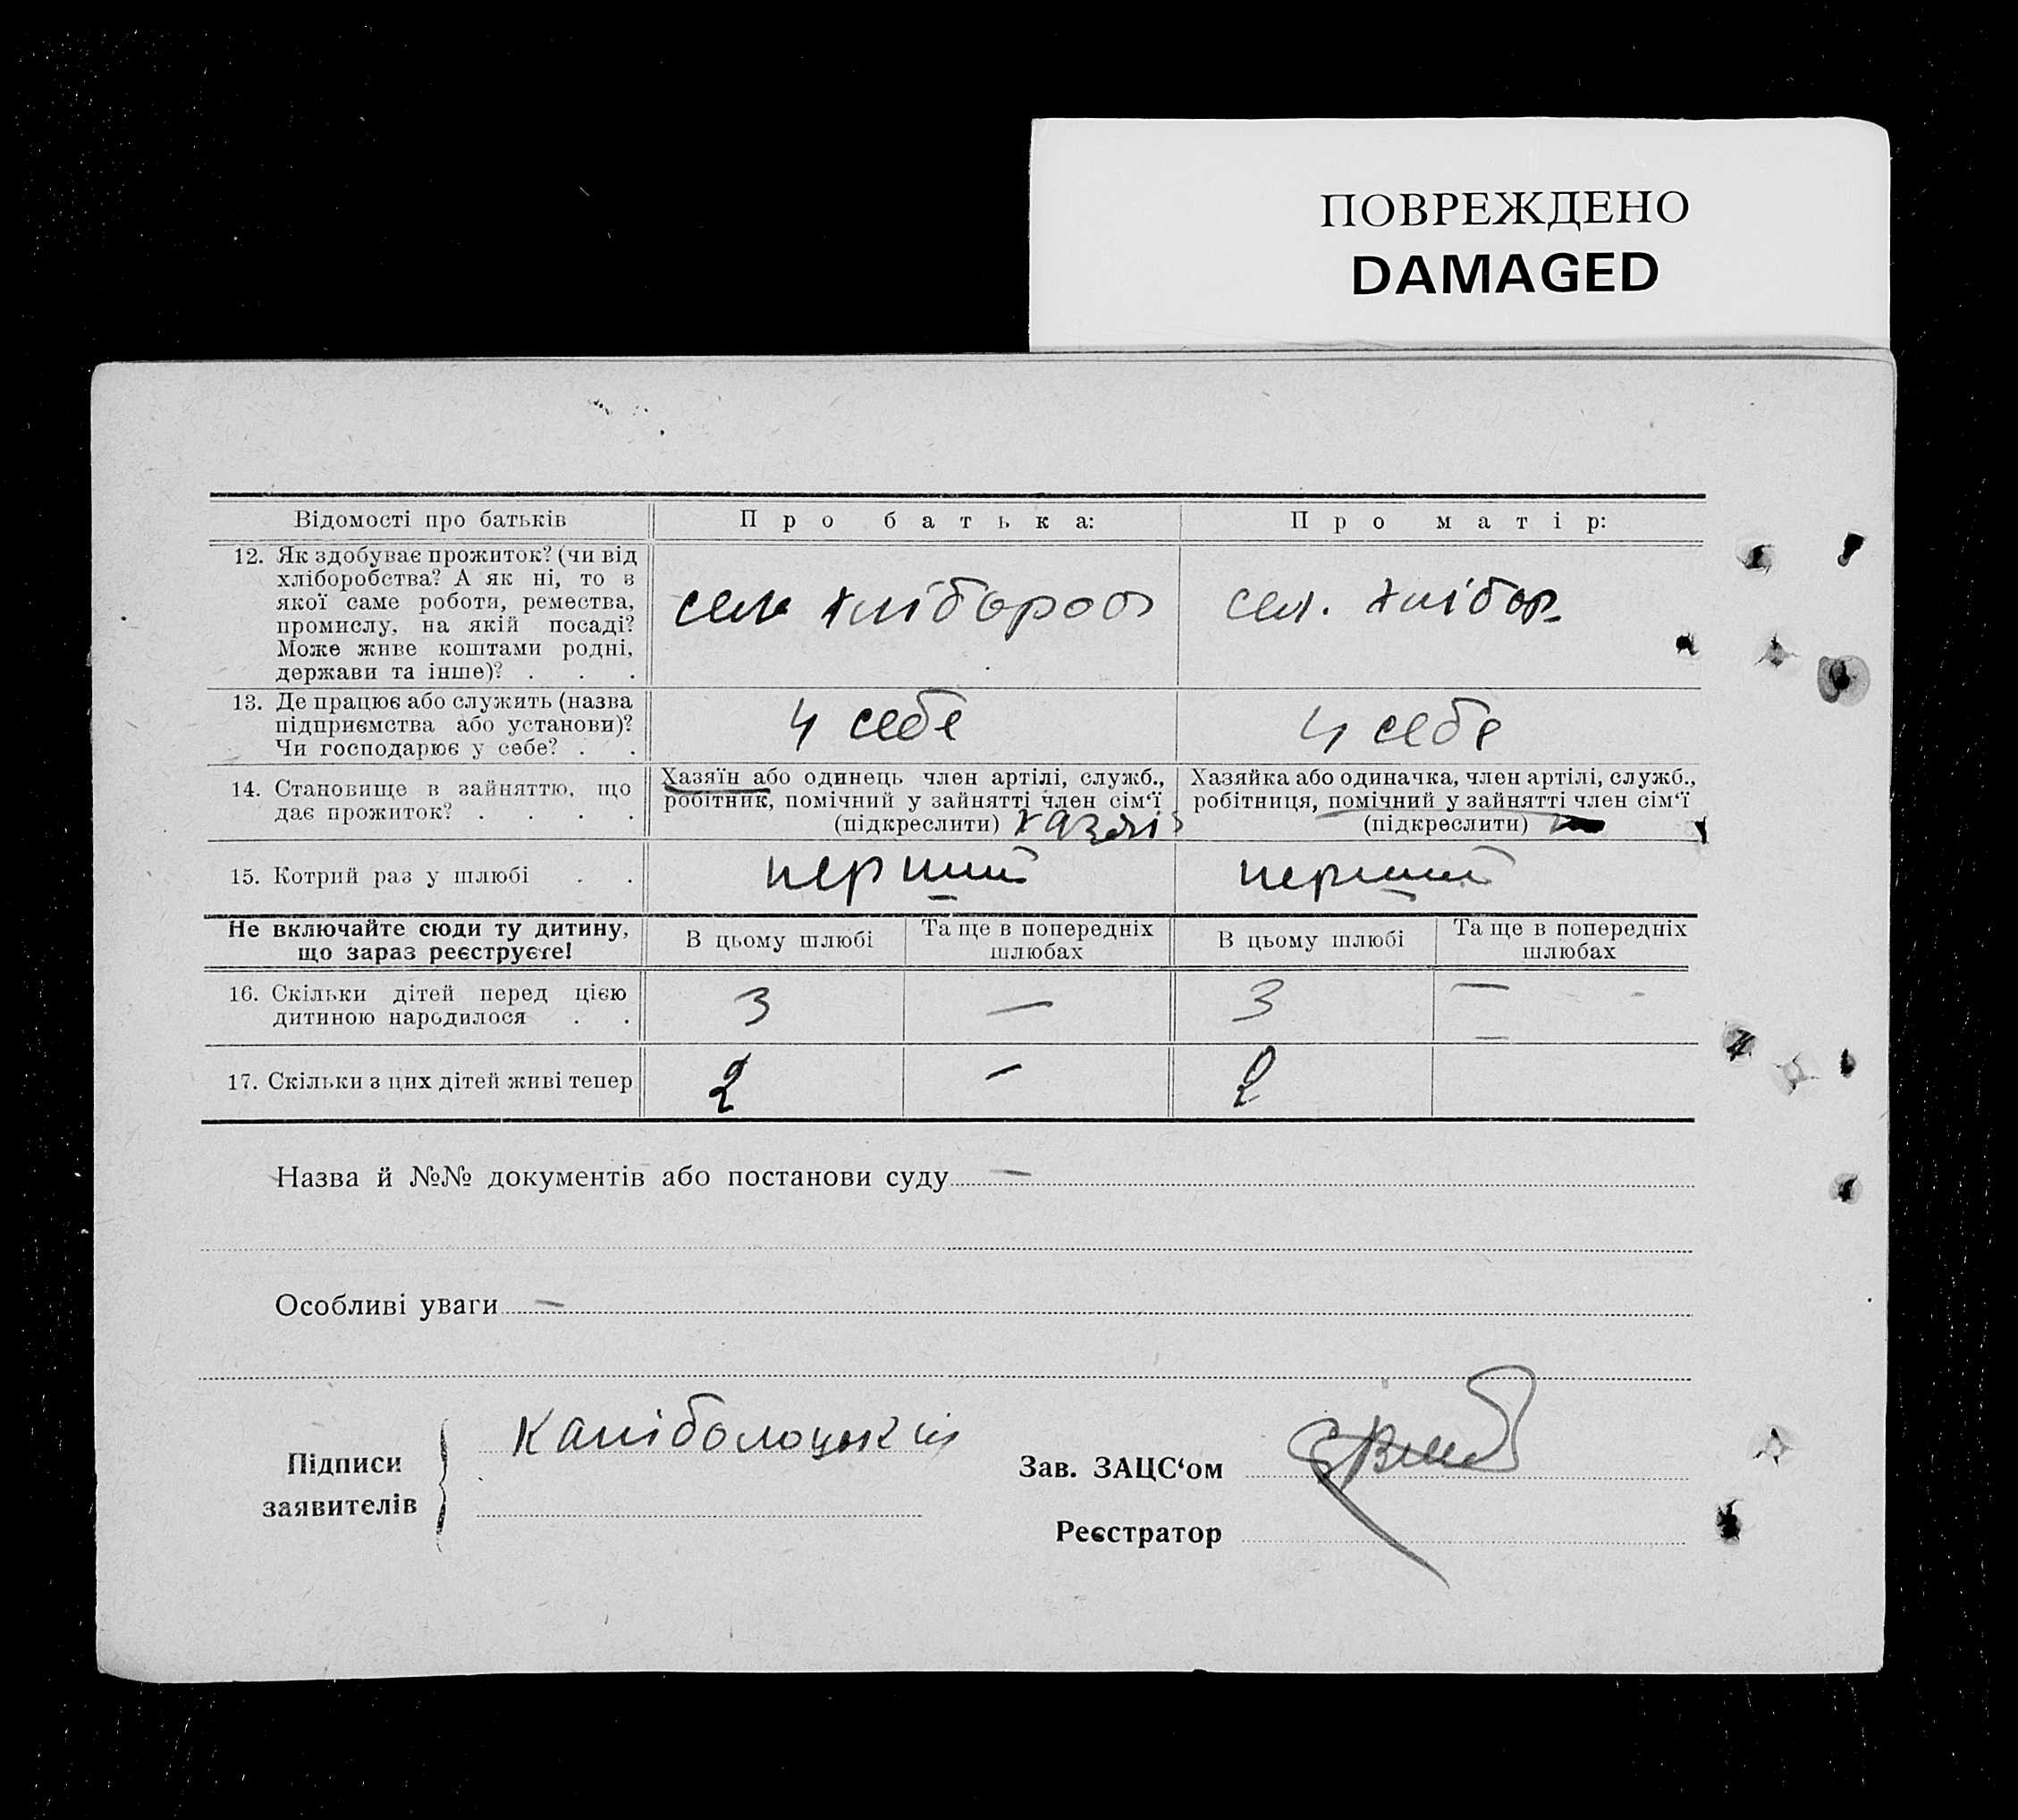 ПОВРЕЖДЕНО
DAMAGED
Відомості про батьків
Про батька:
Про матір:
12. Як здобуває прожиток? (чи від
хліборобства? А як ні, то з
якої саме роботи, ремества,
промислу, на якій посаді?
Може живе коштами родні,
держави та інше)? . . .
селя хлібороб
сел. хлібор.
13. Де працює або служить (назва
підприємства або установи)?
Чи господарює у себе? . .
у себе
у себе
14. Становище в зайняттю, що
дає прожиток? . . . .
Хазяїн або одинець член артілі, служб.,
робітник, помічний у зайнятті член сім'ї
(підкреслити) хазяїн
Хазяйка або одиначка, член артілі, служб.,
робітниця, помічний у зайнятті член сім'ї
(підкреслити)
15. Котрий раз у шлюбі . .
перший
перший
Не включайте сюди ту дитину,
що зараз реєструєте!
В цьому шлюбі
Та ще в попередніх
шлюбах
В цьому шлюбі
Та ще в попередніх
шлюбах
16. Скільки дітей перед цією
дитиною народилося . .
3
—
3
—
17. Скільки з цих дітей живі тепер
2
—
2
—
Назва й №№ документів або постанови суду —
Особливі уваги —
Підписи
заявителів
Каніболоцький
Зав. ЗАЦС‘ом
Реєстратор